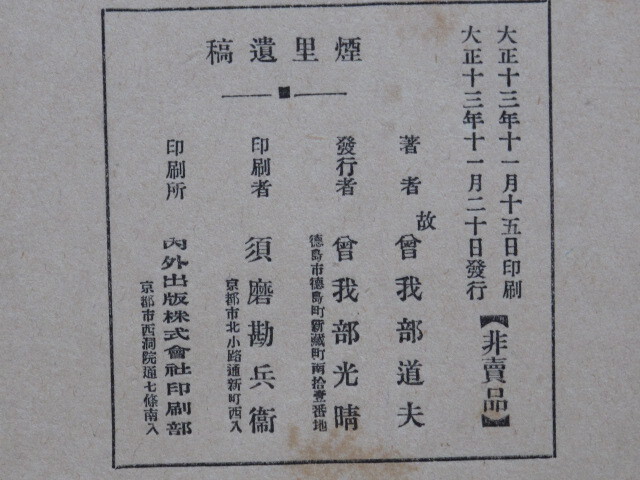 大正十三年十一月十五日印刷
大正十三年十一月二十日發行
【非賣品】
煙里遺稿
著者 故 曾我部道夫
發行者 曾我部光晴
德島市德島町新藏町南拾壹番地
印刷者 須磨勘兵衞
京都市北小路通新町西入
印刷所 內外出版株式會社印刷部
京都市西洞院通七條南入